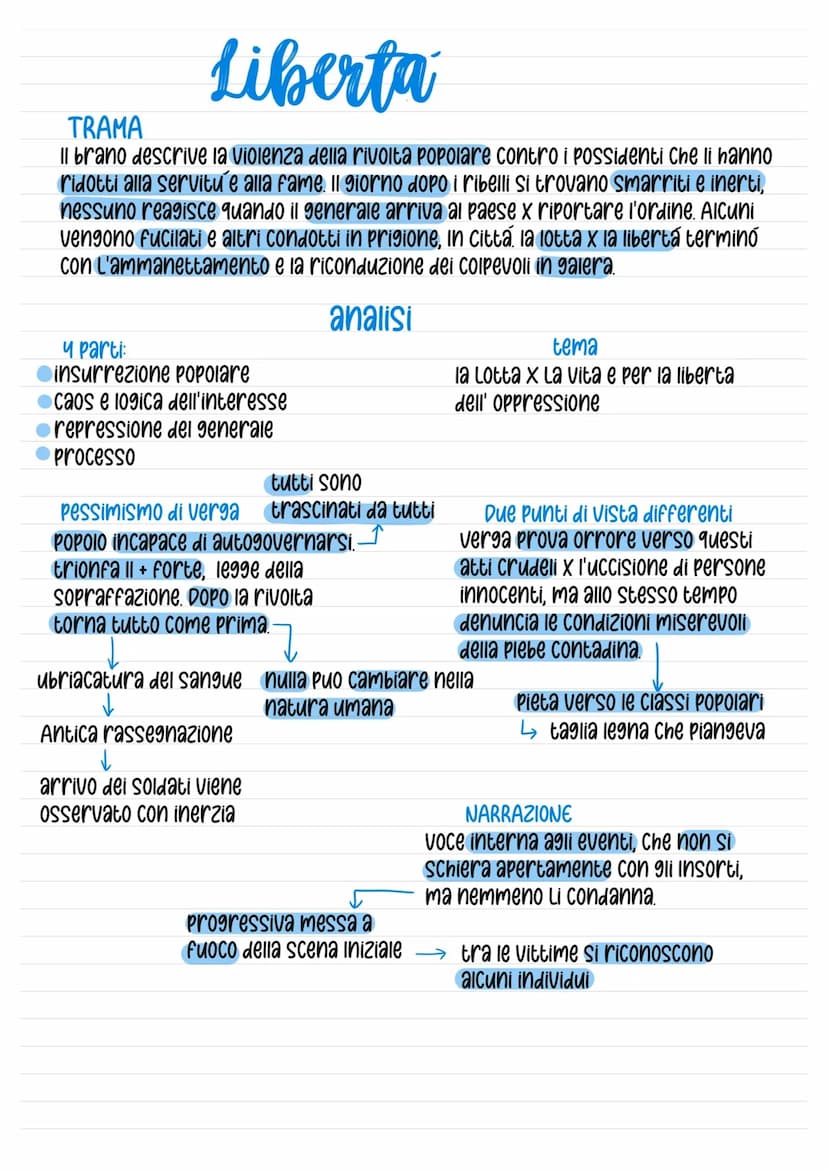 Libertá
TRAMA
Il brano descrive la violenza della rivolta popolare contro i possidenti che li hanno
ridotti alla servitu´e alla fame. Il giorno dopo i ribelli si trovano smarriti e inerti,
nessuno reagisce quando il generale arriva al paese x riportare l'ordine. Alcuni
vengono fucilati e altri condotti in prigione, in cittá. la lotta x la libertá terminó
con l'ammanettamento e la riconduzione dei colpevoli in galera.
analisi
4 parti:
insurrezione popolare
caos e logica dell'interesse
repressione del generale
processo
tema
la lotta x la vita e per la liberta
dell' oppressione
pessimismo di verga
popolo incapace di autogovernarsi.
trionfa il + forte, legge della
sopraffazione. Dopo la rivolta
torna tutto come prima.
tutti sono
trascinati da tutti
ubriacatura del sangue
Antica rassegnazione
arrivo dei soldati viene
osservato con inerzia
nulla puo cambiare nella
natura umana
Due punti di vista differenti
verga prova orrore verso questi
atti crudeli x l'uccisione di persone
innocenti, ma allo stesso tempo
denuncia le condizioni miserevoli
della plebe contadina.
pieta verso le classi popolari
taglia legna che piangeva
NARRAZIONE
voce interna agli eventi, che non si
schiera apertamente con gli insorti,
ma nemmeno li condanna.
progressiva messa a
fuoco della scena iniziale
tra le vittime si riconoscono
alcuni individui